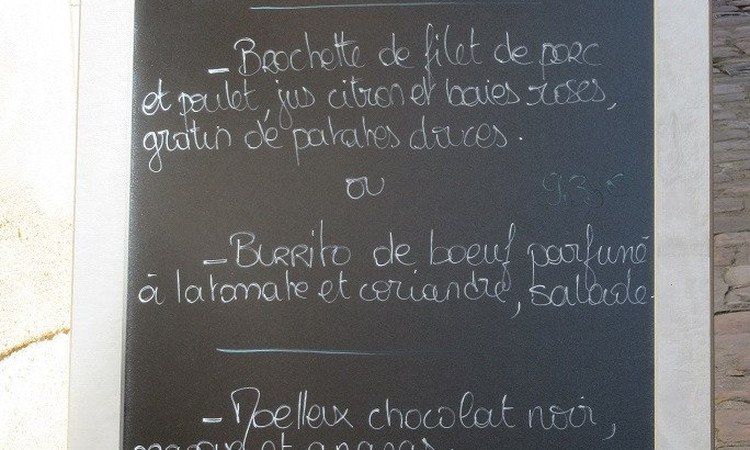 - Brochette de filet de porc
et poulet, jus citron et baies roses,
gratin de patates douces.
ou
- Burrito de boeuf parfumé
à la tomate et coriandre, salade.
- Moelleux chocolat noir,
et ananas.